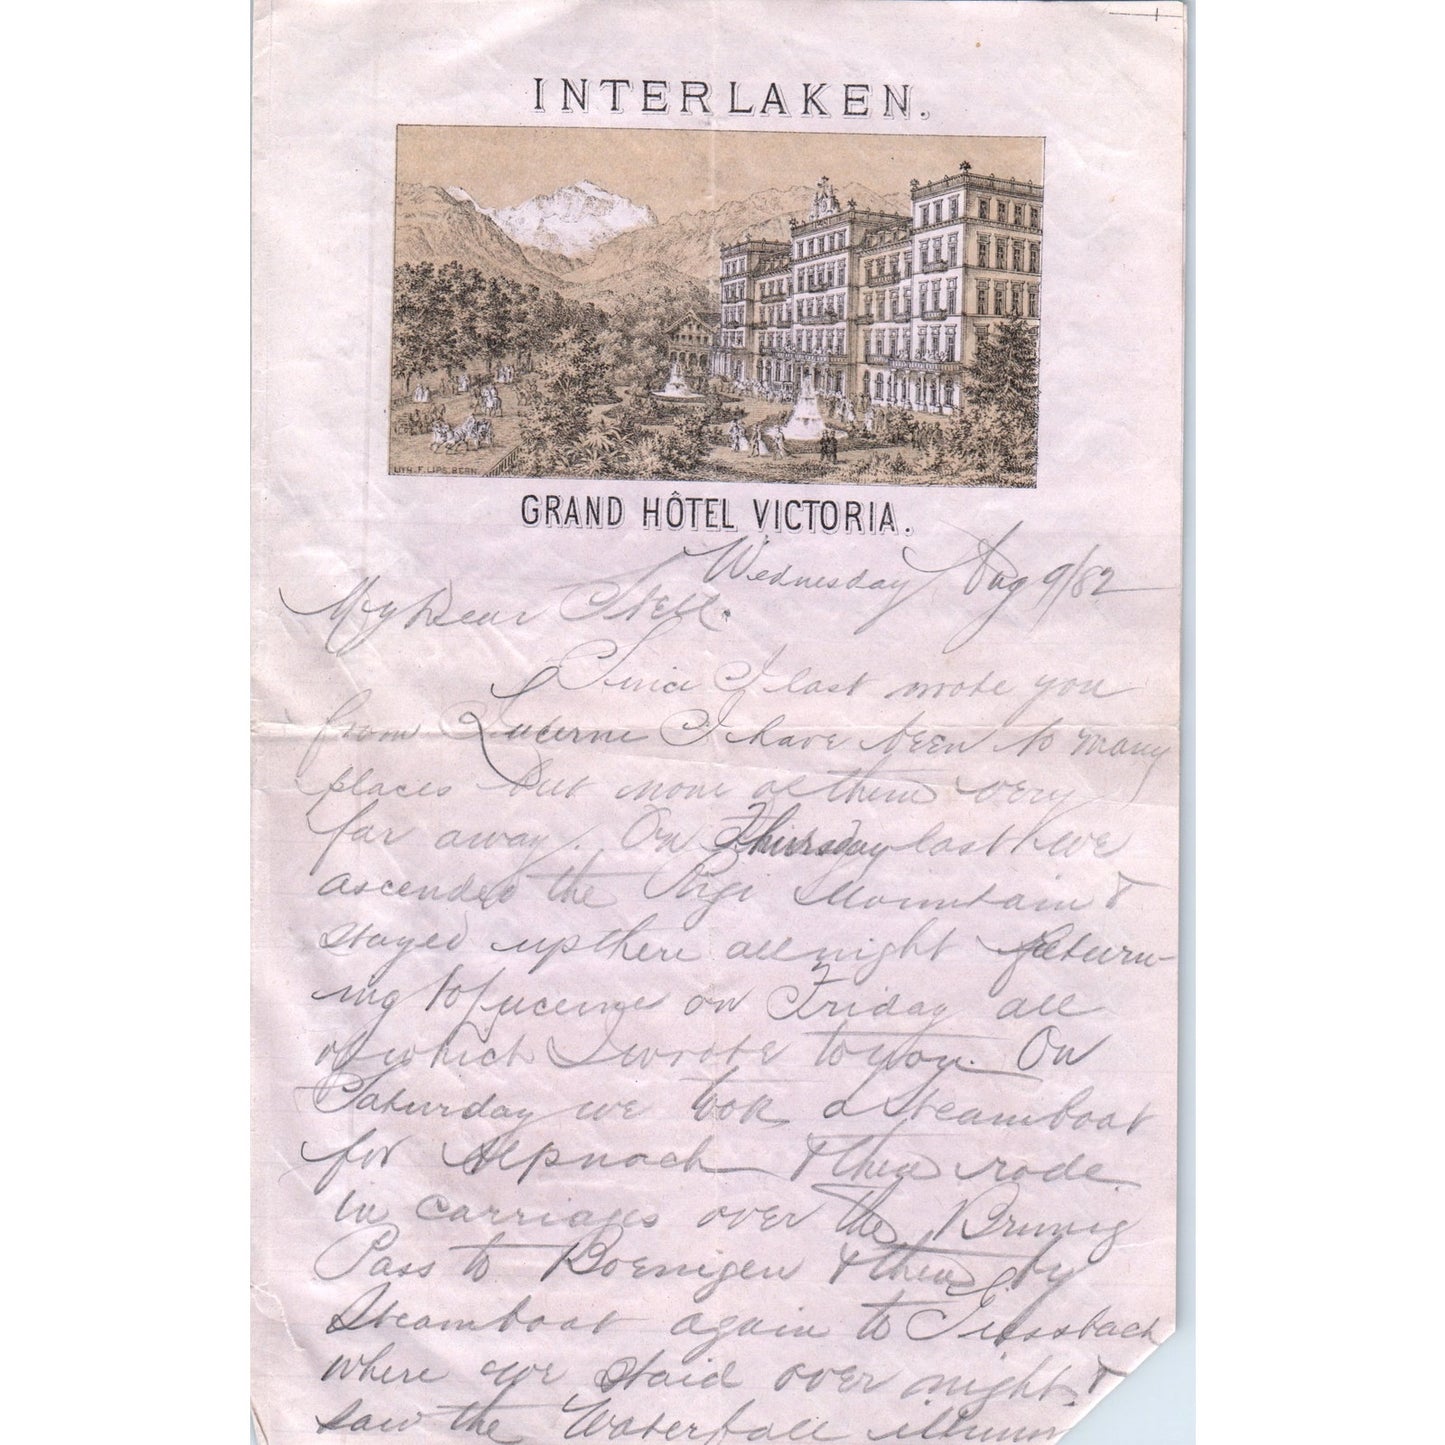 INTERLAKEN.
LITH. F. LIPS. BERN.
GRAND HÔTEL VICTORIA.
Wednesday Aug 9/82
My Dear Nell.
Since I last wrote you
from Lucerne I have been to many
places but none of them very
far away. On Thursday last we
ascended the Rigi Mountain &
stayed up there all night return-
ing to Lucerne on Friday all
of which I wrote to you. On
Saturday we took a steamboat
for Alpnach & then rode
in carriages over the Brunig
Pass to Boenigen & then by
steamboat again to Giessbach
where we staid over night &
saw the Waterfall illumin